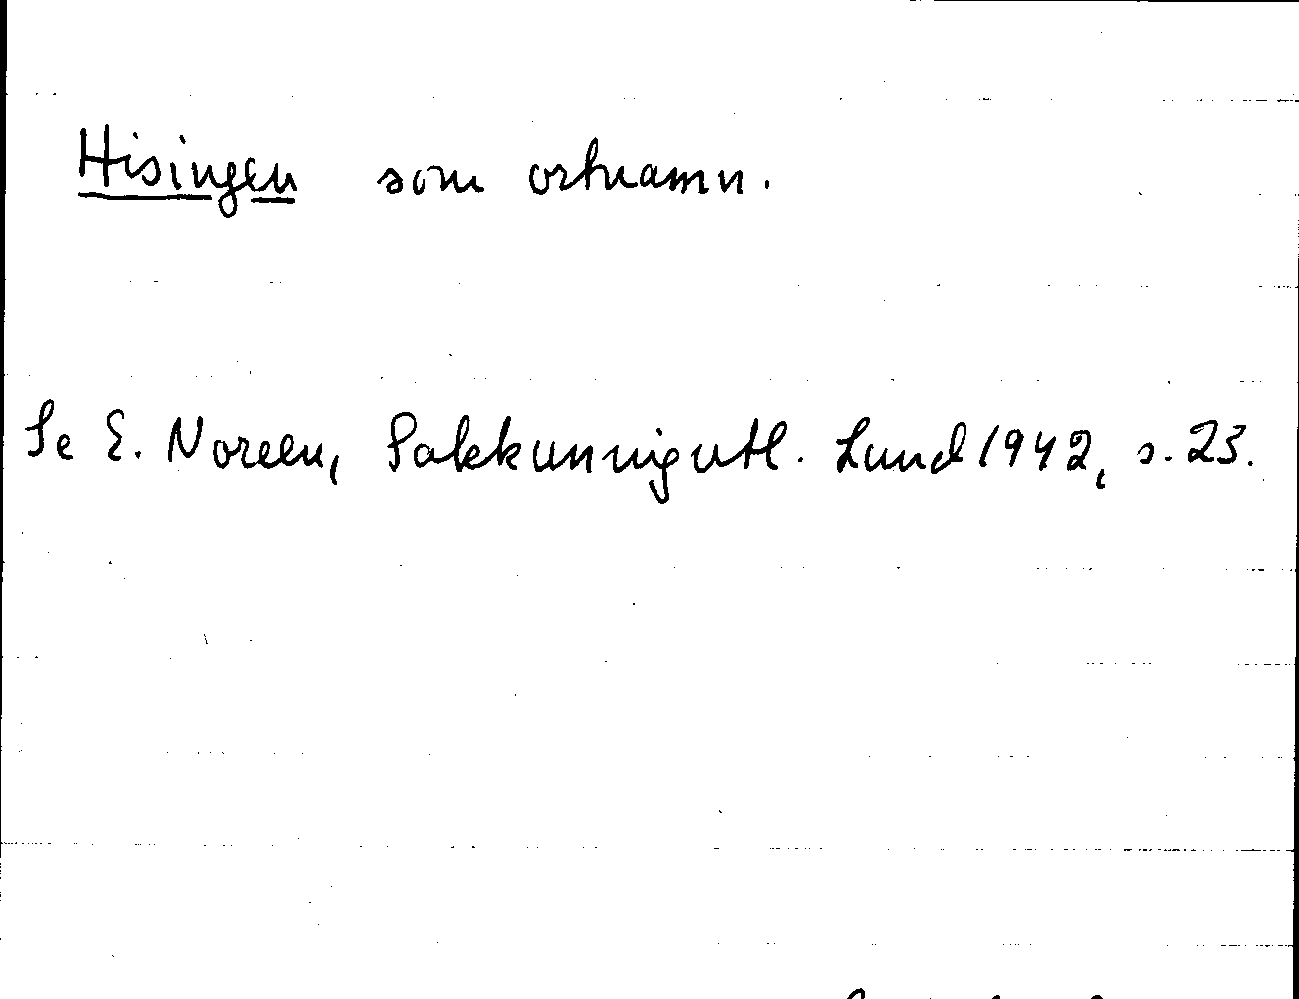 Hisingen som ortnamn.
Se E. Noreen, Sakkunnigutl. Lund 1942, s. 23.